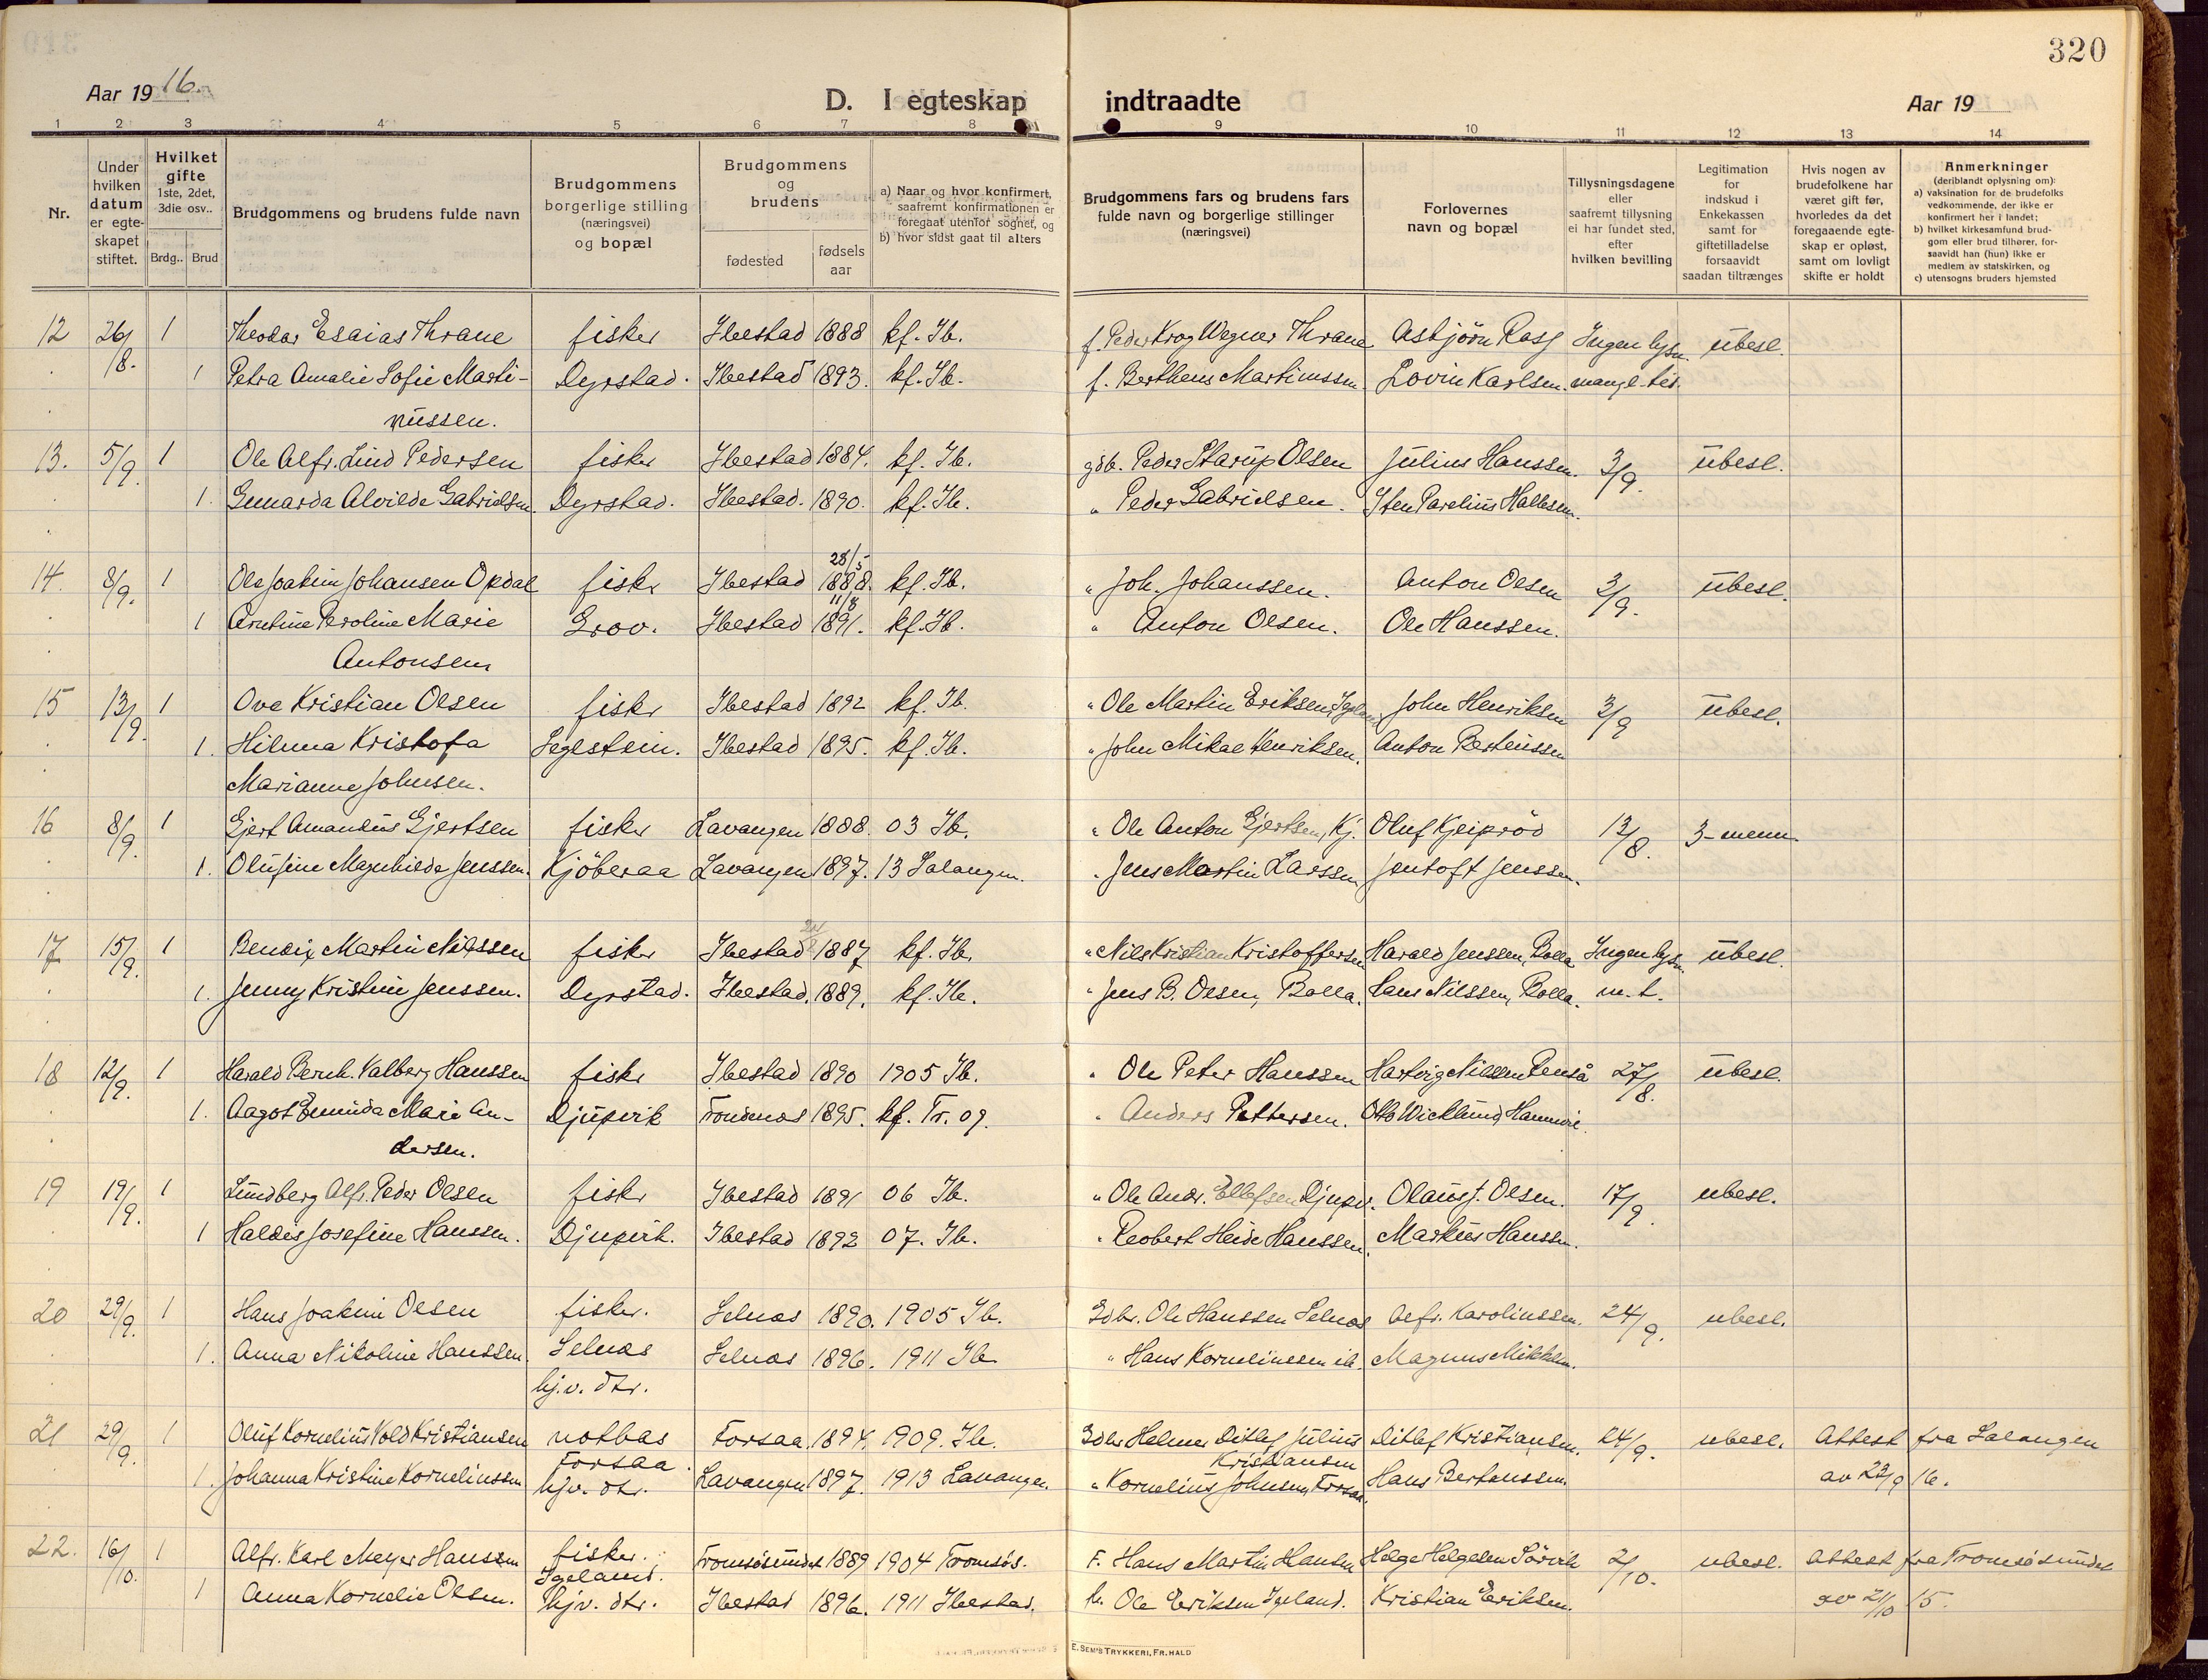 320
Aar 19 16.
D. I egteskap indtraadte
Aar 19
1 2 3 4 5 6 7 8 9 10 11 12 13 14
Nr.
Under hvilken datum er egteskapet stiftet.
Hvilket gifte 1ste, 2det, 3die osv..
Brdg.. Brud
Brudgommens og brudens fulde navn
Brudgommens borgerlige stilling (næringsvei) og bopæl
Brudgommens og brudens
fødested
fødsels aar
a) Naar og hvor konfirmert, saafremt konfirmationen er foregaat utenfor sognet, og
b) hvor sidst gaat til alters
Brudgommens fars og brudens fars fulde navn og borgerlige stillinger (næringsvei)
Forlovernes navn og bopæl
Tillysningsdagene eller saafremt tillysning ei har fundet sted, efter hvilken bevilling
Legitimation for indskud i Enkekassen samt for giftetilladelse forsaavidt saadan tiltrænges
Hvis nogen av brudefolkene har været gift før, hvorledes da det foregaaende egteskap er opløst, samt om lovligt skifte er holdt
Anmerkninger (deriblandt oplysning om):
a) vaksination for de brudefolks vedkommende, der ikke er konfirmert her i landet;
b) hvilket kirkesamfund brudgom eller brud tilhører, forsaavidt han (hun) ikke er medlem av statskirken, og
c) utensogns bruders hjemsted
12 26/8. 1 Theodor Esaias Thrane fisker Ibestad 1888 kf. Ib. f. Peder Krog Wegner Thrane Asbjörn Rasj Ingen lysn. ubesl.
1 Petra Amalie Sofie Marti- Dyrstad. Ibestad 1893. kf. Ib. f. Bertheus Martinussen Lovin Karlsen. mangl. tid.
nussen.
13. 5/9. 1 Ole Alfr. Lind Pedersen fisker Ibestad 1884. kf. Ib. gdb. Peder Starup Olsen Julius Hanssen. 3/9. ubesl.
1. Gunarda Alvilde Gabrielsen. Dyrstad. Ibestad. 1890. kf. Ib. " Peder Gabrielsen. Sten Parelius Hallesen.
28/5
14. 8/9. 1 Ole Joakim Johansen Opdal fisker Ibestad 1888. kf. Ib. " Joh. Johanssen. Anton Olsen 3/9. ubesl.
11/8
1 Arntine Peroline Marie Grov. Ibestad 1891. kf. Ib. " Anton Olsen. Ole Hanssen.
Antonsen
15 13/9. 1 Ove Kristian Olsen fisker Ibestad 1892 kf. Ib. " Ole Martin Eriksen, Igeland John Henriksen 3/9 ubesl.
1. Hilma Kristofa Segelstein. Ibestad 1895. kf. Ib. " John Mikal Henriksen. Anton Berteussen
Marianne Johnsen.
16 8/9. 1 Gjert Amandus Gjertsen fisker Lavangen 1888. 03 Ib. " Ole Anton Gjertsen, Kj. Oluf Kjeipröd 13/8. 3-menn.
1. Olufine Magnhilde Jenssen. Kjöberaa Lavangen 1897. 13 Salangen. " Jens Martin Larssen Jentoft Jenssen.
17 15/9. 1 Bendix Martin Nilssen fisker Ibestad 1887 kf. Ib. " Nils Kristian Kristoffersen Harald Jenssen, Rolla Ingen lysn. ubesl.
1. Jenny Kristine Jenssen. Dyrstad. Ibestad. 1889. kf. Ib. " Jens B. Olsen, Rolla. Hans Nilssen, Rolla. m. t.
18 12/9. 1 Harald Bernh. Valberg Hanssen fisker Ibestad 1890 1905 Ib. " Ole Peter Hanssen Hartvig Nilssen Renså 27/8. ubesl.
1. Aagot Eminda Marie An- Djupvik Trondenes 1895. kf. Tr. 09. " Anders Pettersen. Otto Wicklund, Hamnvik.
dersen.
19 19/9. 1 Lundberg Alfr. Peder Olsen fisker Ibestad 1891 06 Ib. " Ole Andr. Ellefsen Djupv. Olaus J. Olsen. 17/9. ubesl.
1 Haldis Josefine Hanssen. Djupvik. Ibestad 1892 07. Ib. " Reobert Heide Hanssen. Markus Hanssen.
20 29/9. 1 Hans Joakim Olsen fisker. Selnas 1890. 1905 Ib. Gdbr. Ole Hanssen Selnas Alfr. Karolinssen. 24/9. ubesl.
1. Anna Nikoline Hanssen. Selnas Selnas 1896. 1911 Ib " Hans Korneliussen ib. Magnus Mikkelsen.
hj.v. dtr.
21 29/9. 1 Oluf Kornelius Vold Kristiansen notbas Forsaa. 1894. 1909. Ib. Gdbr Helmer Ditlef Julius Kristiansen Ditlef Kristiansen. 24/9. ubesl. Attest fra Salangen
Forsaa.
1. Johanna Kristine Korneliussen hjv. dtr. Lavangen 1897. 1913 Lavangen. " Kornelius Johnsen, Forsaa. Hans Bertheussen. av 23/9 16.
22. 16/10. 1 Alfr. Karl Meyer Hanssen fisker. Tromsösundet 1889 1904 Tromsös. F. Hans Martin Hansen Helge Helgesen Sörvik 2/10. ubesl. Attest fra Tromsösundet
Igeland.
1 Anna Kornelie Olsen. hjv. dtr. Ibestad 1896. 1911 Ibestad. h. Ole Eriksen Igeland. Kristian Eriksen. av 21/10 15.
E. SEM'S TRYKKERI, FR. HALD